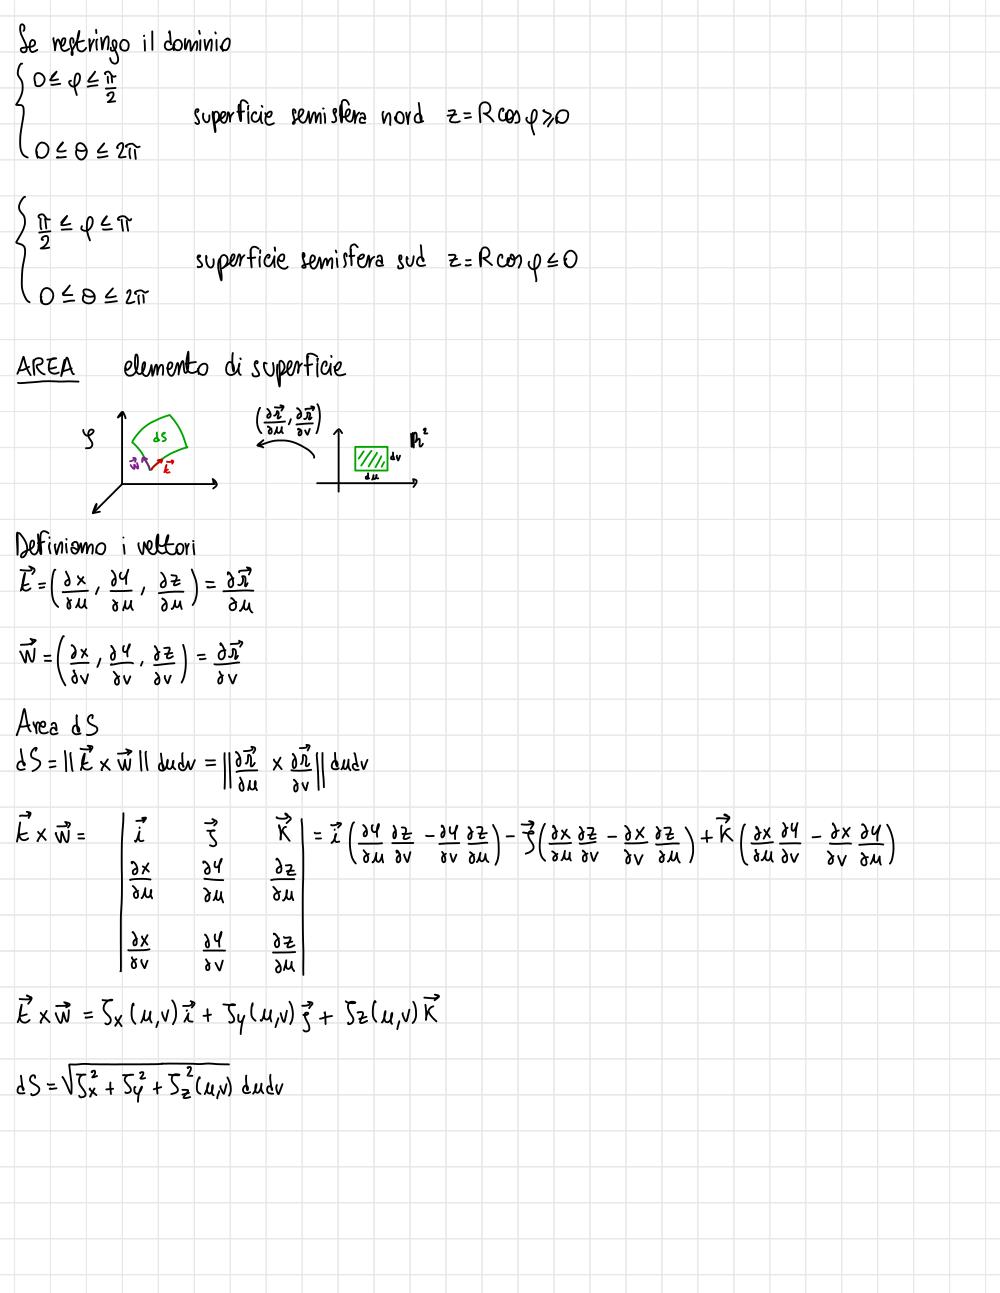 Se restringo il dominio
{ 0 ≤ φ ≤ π/2
superficie semisfera nord z = R cos φ ≥ 0
0 ≤ θ ≤ 2π
{ π/2 ≤ φ ≤ π
superficie semisfera sud z = R cos φ ≤ 0
0 ≤ θ ≤ 2π
AREA elemento di superficie
(∂r⃗/∂u, ∂r⃗/∂v)
S dS w⃗ t⃗
ℝ² dv du
Definiamo i vettori
t⃗ = (∂x/∂u, ∂y/∂u, ∂z/∂u) = ∂r⃗/∂u
w⃗ = (∂x/∂v, ∂y/∂v, ∂z/∂v) = ∂r⃗/∂v
Area dS
dS = ||t⃗ × w⃗|| dudv = ||∂r⃗/∂u × ∂r⃗/∂v|| dudv
t⃗ × w⃗ = | i⃗ j⃗ k⃗ | = i⃗ (∂y/∂u ∂z/∂v - ∂y/∂v ∂z/∂u) - j⃗ (∂x/∂u ∂z/∂v - ∂x/∂v ∂z/∂u) + k⃗ (∂x/∂u ∂y/∂v - ∂x/∂v ∂y/∂u)
∂x/∂u ∂y/∂u ∂z/∂u
∂x/∂v ∂y/∂v ∂z/∂u
t⃗ × w⃗ = Jx(u,v) i⃗ + Jy(u,v) j⃗ + Jz(u,v) k⃗
dS = √(Jx² + Jy² + Jz²(u,v)) dudv